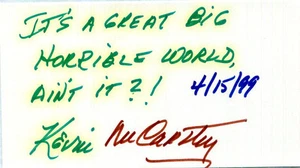 IT'S A GREAT BIG
HORRIBLE WORLD,
AIN'T IT?!
4/15/99
Kevin McCarthy